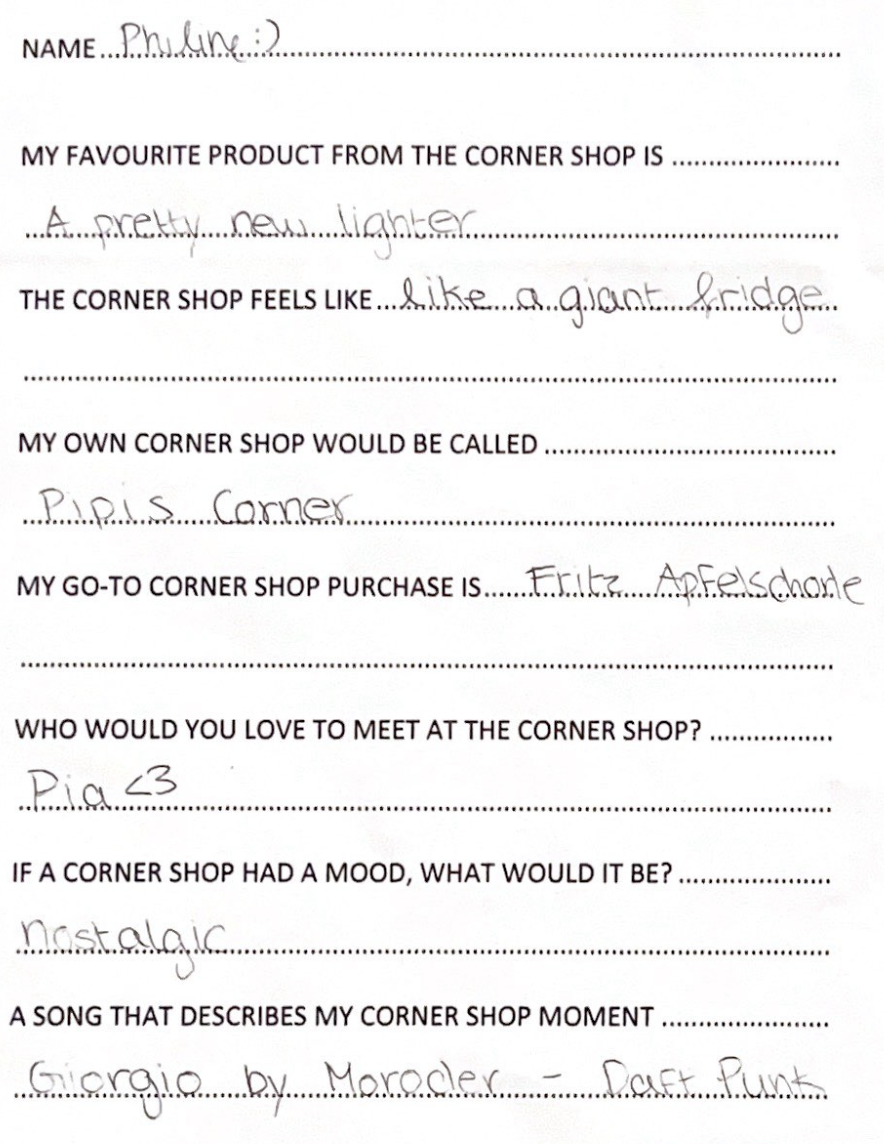 NAME Philine :)
MY FAVOURITE PRODUCT FROM THE CORNER SHOP IS
A pretty new lighter
THE CORNER SHOP FEELS LIKE like a giant fridge
MY OWN CORNER SHOP WOULD BE CALLED
Pipis Corner
MY GO-TO CORNER SHOP PURCHASE IS Fritz Apfelschorle
WHO WOULD YOU LOVE TO MEET AT THE CORNER SHOP?
Pia <3
IF A CORNER SHOP HAD A MOOD, WHAT WOULD IT BE?
nostalgic
A SONG THAT DESCRIBES MY CORNER SHOP MOMENT
Giorgio by Moroder - Daft Punk